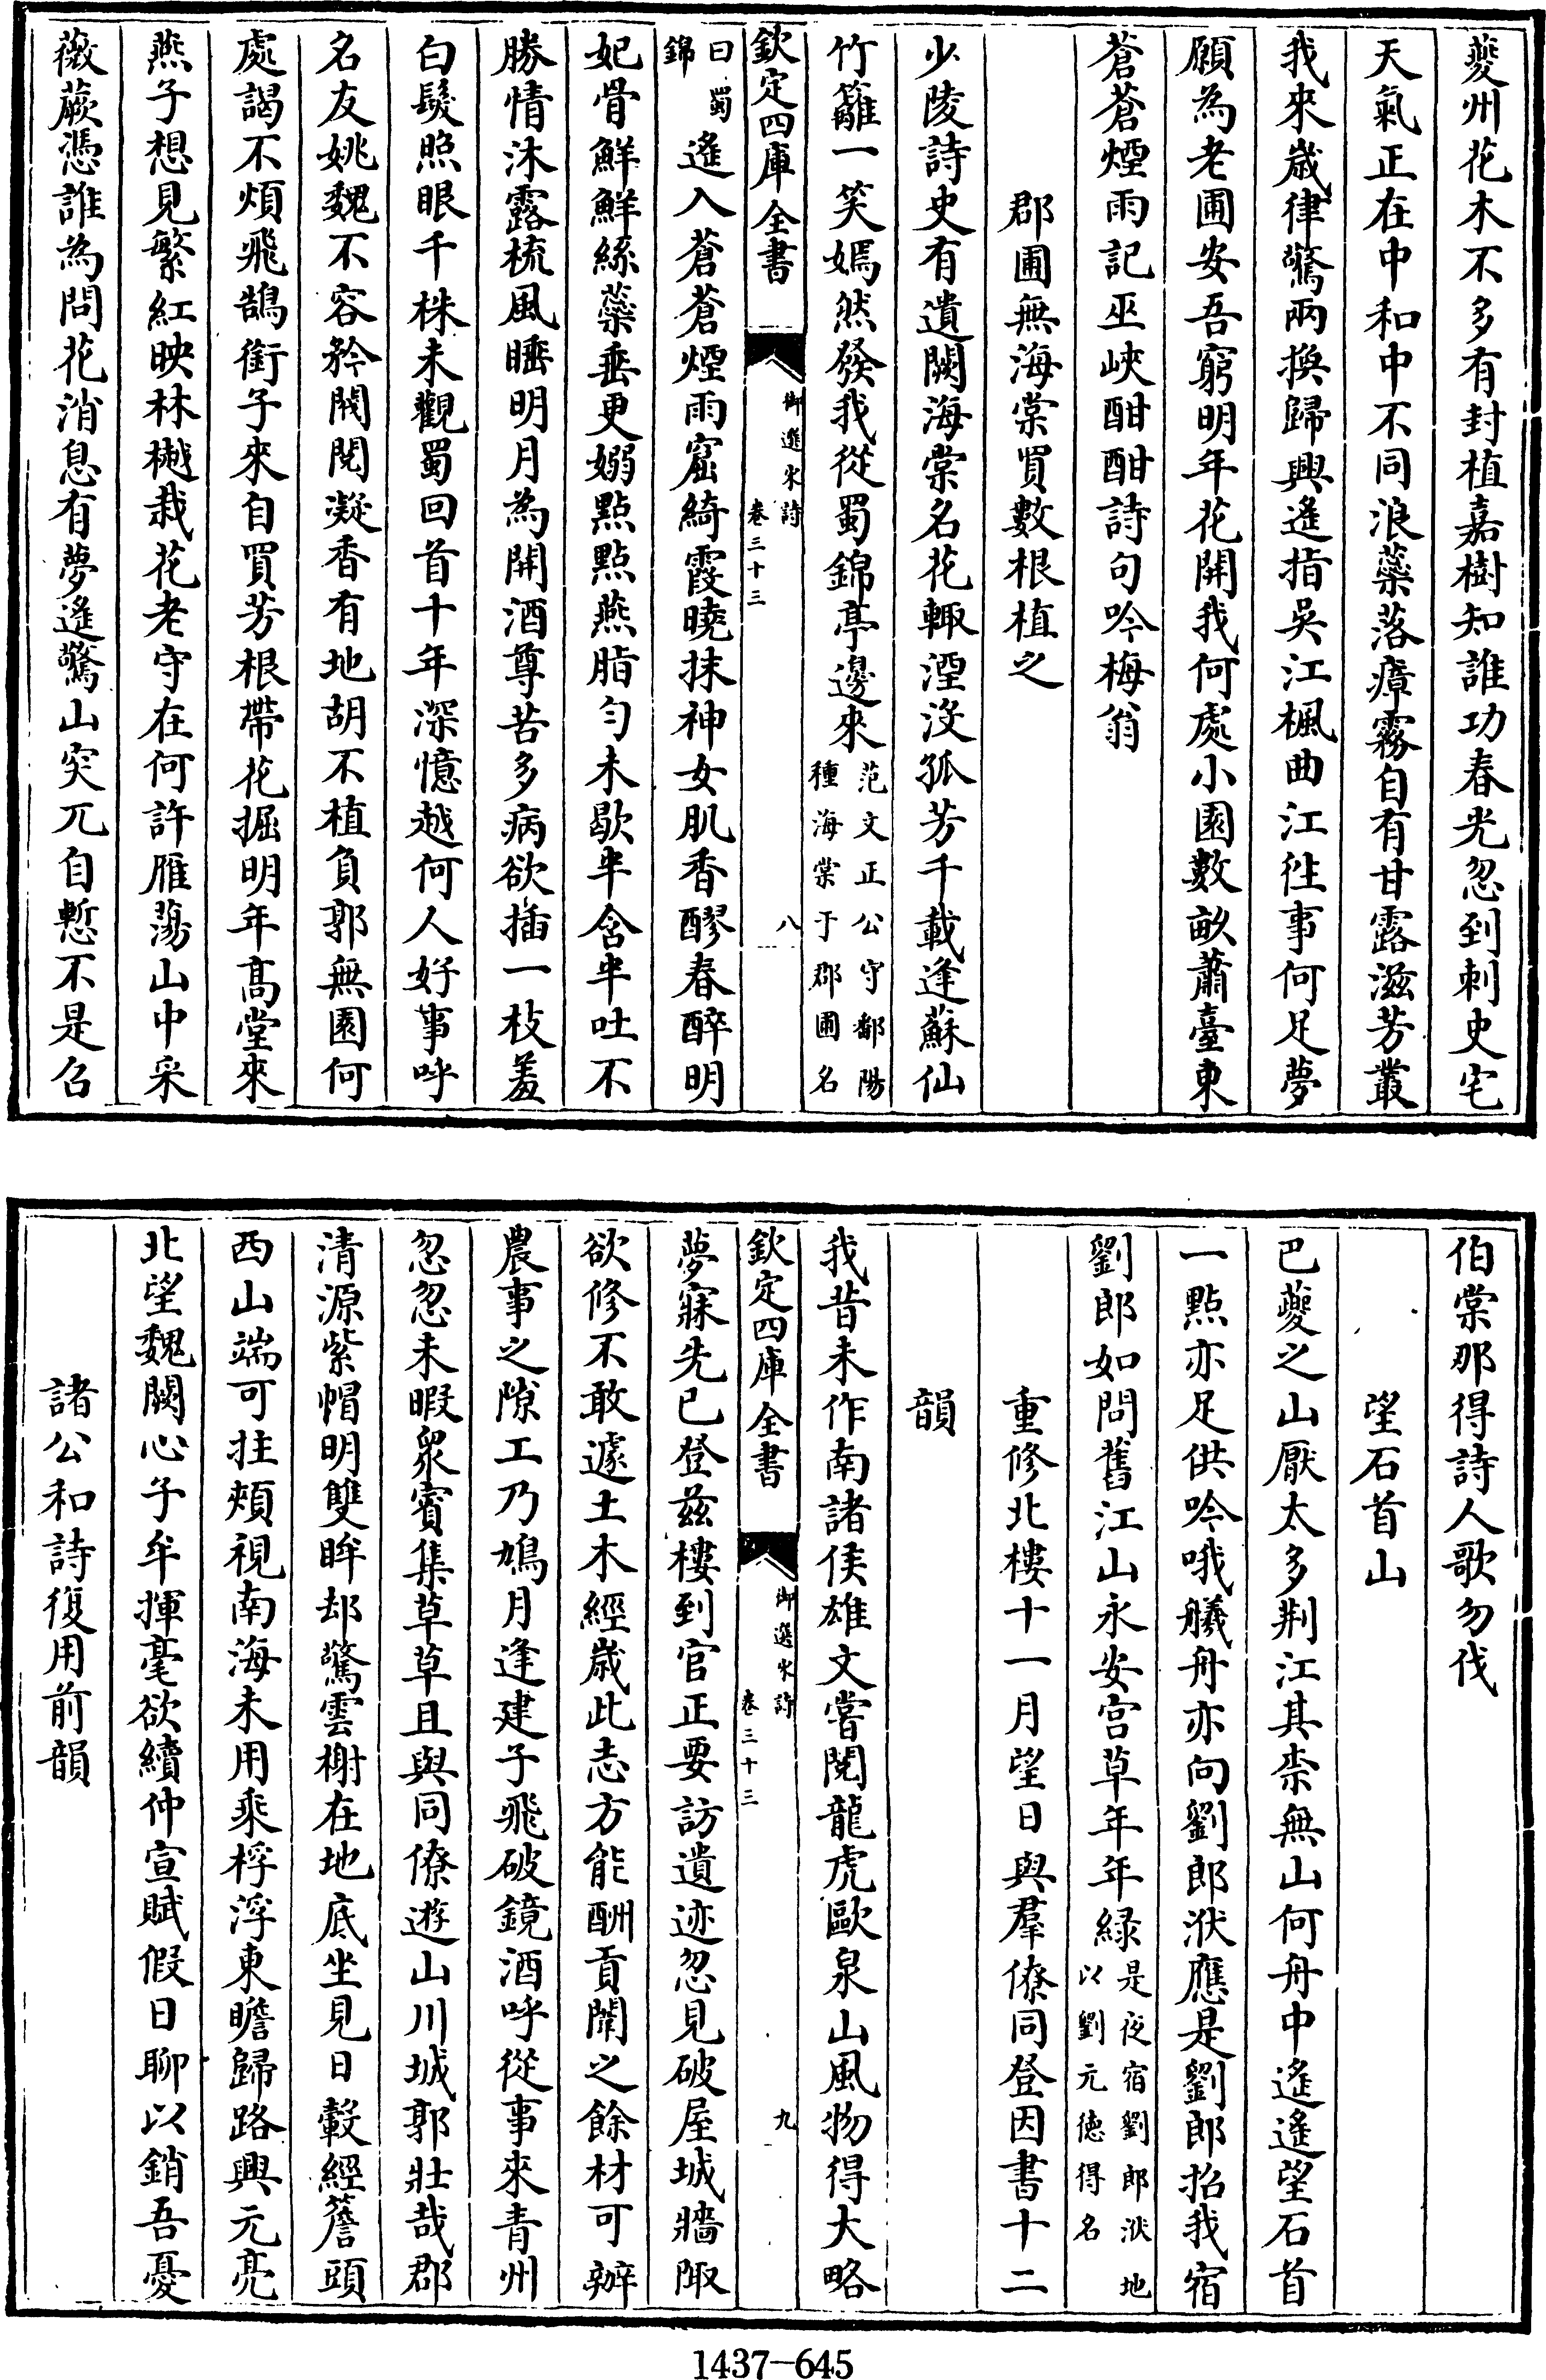 夔州花木不多有封植嘉樹知誰功春光忽到刺史宅
天氣正在中和中不同浪蘂落瘴霧自有甘露滋芳叢
我來嵗律驚兩換歸興遙指吳江楓曲江徃事何足夢
願為老圃安吾窮明年花開我何處小園數畝蕭臺東
蒼蒼煙雨記巫峽酣酣詩句吟梅翁
郡圃無海棠買數根植之
少陵詩史有遺闕海棠名花輙湮沒孤芳千載逢蘇仙
竹籬一笑嫣然發我從蜀錦亭邊來范文正公守鄱陽種海棠于郡圃名
欽定四庫全書
御選宋詩
卷三十三
八
曰蜀錦遙入蒼蒼煙雨窟綺霞曉抹神女肌香醪春醉明
妃骨鮮鮮絲蘂垂更嫋點點燕脂勻未歇半含半吐不
勝情沐露梳風睡明月為開酒尊苦多病欲插一枝羞
白髮照眼千株未觀蜀回首十年深憶越何人好事呼
名友姚魏不容矜閥閱凝香有地胡不植負郭無園何
處謁不煩飛鵠銜子來自買芳根帶花掘明年高堂來
燕子想見繁紅映林樾栽花老守在何許雁蕩山中采
薇蕨憑誰為問花消息有夢遙驚山突兀自慙不是召
伯棠那得詩人歌勿伐
望石首山
巴夔之山厭太多荆江其柰無山何舟中遙遙望石首
一點亦足供吟哦艤舟亦向劉郎洑應是劉郎招我宿
劉郎如問舊江山永安宫草年年緑是夜宿劉郎洑地以劉元徳得名
重修北樓十一月望日與羣僚同登因書十二
韻
我昔未作南諸侯雄文嘗閱龍虎歐泉山風物得大略
欽定四庫全書
御選宋詩
卷三十三
九
夢寐先已登兹樓到官正要訪遺迹忽見破屋城牆陬
欲修不敢遽土木經嵗此志方能酬貢闈之餘材可辦
農事之隙工乃鳩月逢建子飛破鏡酒呼從事來青州
忽忽未暇衆賓集草草且與同僚遊山川城郭壯哉郡
清源紫帽明雙眸却驚雲榭在地底坐見日轂經簷頭
西山端可拄頰視南海未用乘桴浮東瞻歸路興元亮
北望魏闕心子牟揮毫欲續仲宣賦假日聊以銷吾憂
諸公和詩復用前韻
1437-645